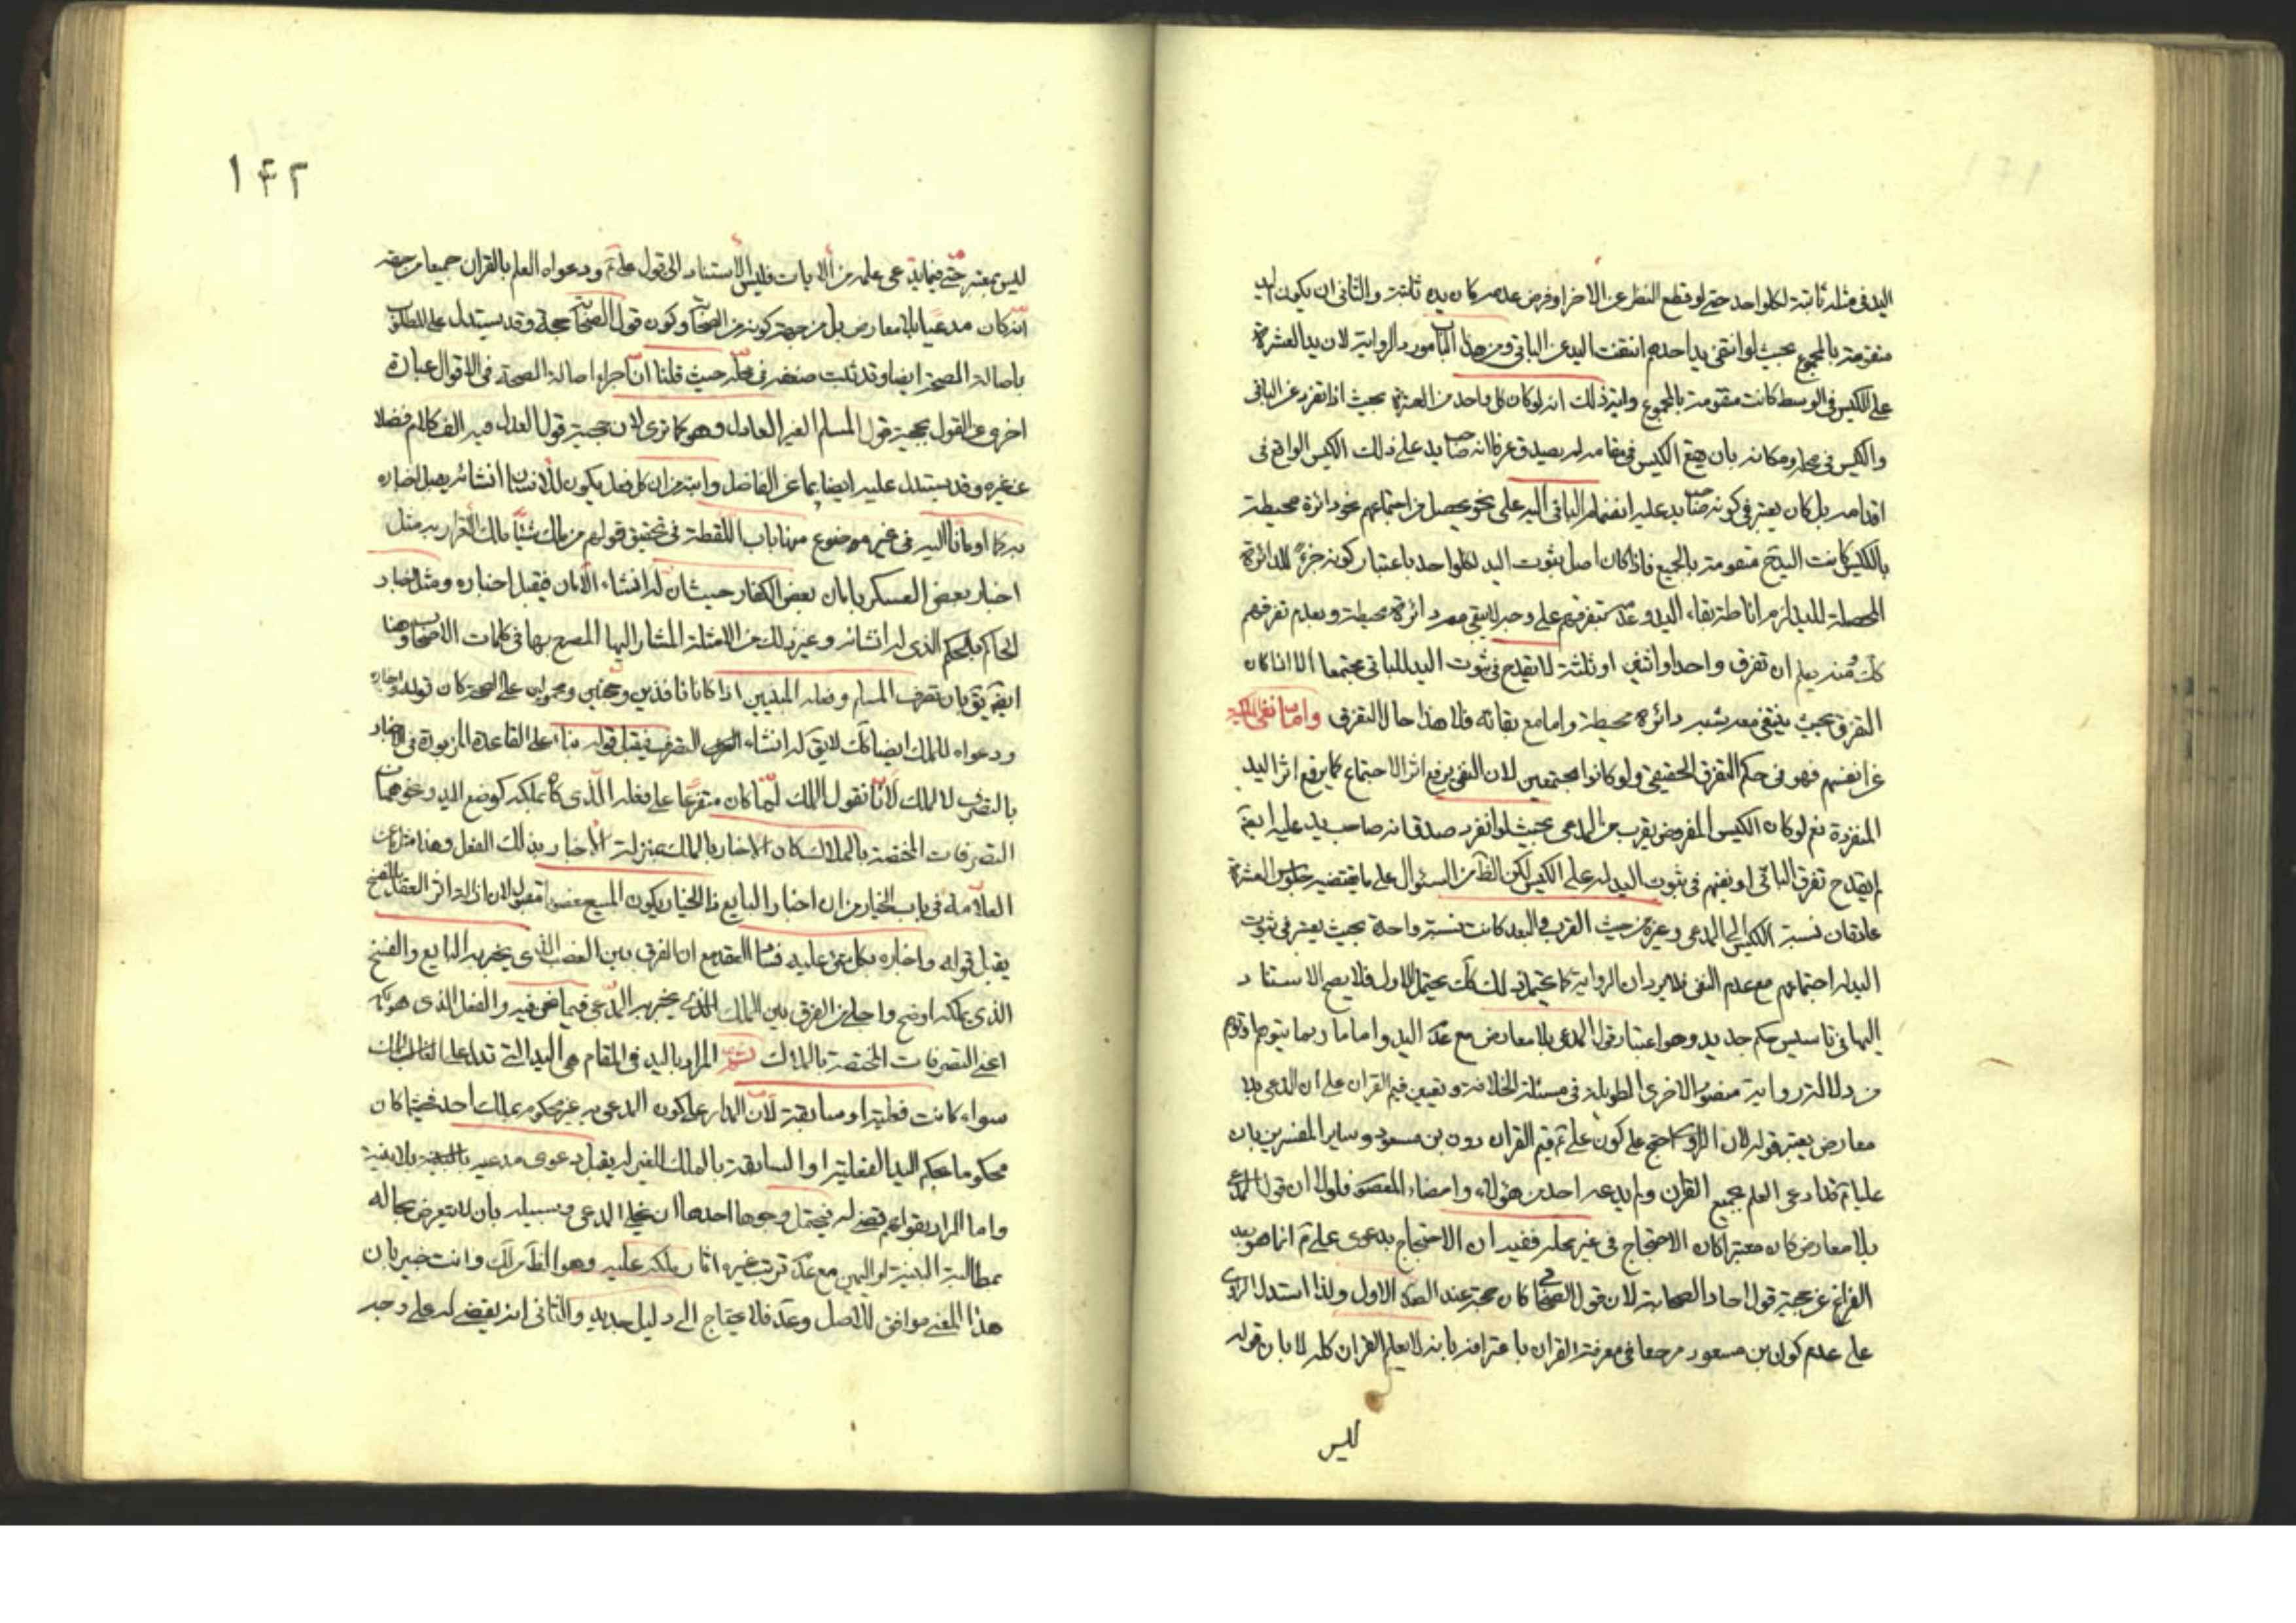 اليد في مثله ثابتة لكل واحد حتى لو قطع النظر عن الاخر او فرض عدمه كان يده ثابتة والثاني ان يكون اليد
متقومة بالمجموع بحيث لو انتفى يد احدهم انتفت اليد عن الباقي ومن هذا الباب مورد الرواية لان يد العشرة
على الكيس في الوسط كانت متقومة بالمجموع واية ذلك انه لو كان كل واحد من العشرة بحيث اذا تفرد عن الباقي
والكيس في محله ومكانه بان يقع الكيس في مقامه لم يصدق عرفا انه صاحب يد على ذلك الكيس الواقع في
اقدامه بل كان يعتبر في كونه صاحب يد عليه انضمام الباقي اليه على نحو يحصل من اجتماعهم نحو دائرة محيطة
بالكيس كانت اليد ح متقومة بالجميع فاذا كان اصل ثبوت اليد لكل واحد باعتبار كونه جزء للدائرة
المحصلة لليد لزم اناطة بقاء اليد وعدمه بتفرقهم على وجه لا يبقى معه دائرة محيطة وبعدم تفرقهم
كك ومنه يعلم ان تفرق واحد او اثنين او ثلثة لا يقدح في ثبوت اليد للباقي مجتمعا الا اذا كان
التفرق بحيث ينتفي معه شبه دائرة محيطة واما مع بقائه فلا هذا حال التفرق واما نفي الكيس
عن انفسهم فهو في حكم التفرق الحقيقي ولو كانوا مجتمعين لان النفي يرفع اثر الاجتماع كما يرفع اثر اليد
المنفردة نعم لو كان الكيس المفروض يقرب من المدعى بحيث لو انفرد صدق انه صاحب يد عليه ايضا
لم يقدح تفرق الباقي او نفيهم في ثبوت اليد له على الكيس لكن الظاهر من السئوال على ما يقتضيه جلوس العشرة
عادة ان نسبة الكيس الى المدعى وغيره من حيث القرب والبعد كانت نسبة واحدة بحيث يعتبر في ثبوت
اليد له اجتماعهم مع عدم النفي فلا يرد ان الرواية كما يحتمل ذلك كك يحتمل الاول فلا يصح الاستناد
اليها في تاسيس حكم جديد وهو اعتبار قول المدعى بلا معارض مع عدم اليد واما ما ربما يتوهم او توهم
من دلالة رواية منصور الاخرى الطويلة في مسئلة الخلافة وتعيين قيم القران على ان المدعى بلا
معارض يعتبر قوله لان الراوى احتج على كون علي ع قيم القران دون بن مسعود وساير المفسرين بان
عليا ع قد ادعى العلم بجميع القران ولم يدعه احد من هؤلاء وامضاه المعصوم فلولا ان قول المدعى
بلا معارض كان معتبرا كان الاحتجاج في غير محله ففيه ان الاحتجاج بدعوى علي ع انما هو بعد
الفراغ عن حجية قول احاد الصحابة لان قول الصحابي كان حجة عند الصدر الاول ولذا استدل الراوى
على عدم كون بن مسعود مرجعا في معرفة القران باعترافه بانه لا يعلم القران كله لا بان قوله
ليس
١٤٢
ليس بمعتبر حتى فيما يدعى علمه من الايات فليس الاستناد الى قول علي ع ودعواه العلم بالقران جميعا من جهة
انه كان مدعيا بلا معارض بل من جهة كونه من الصحابة وكون قول الصحابي حجة وقد يستدل على المطلوب
باصالة الصحة ايضا وقد ثبت ضعفه في محله حيث قلنا ان اجراء اصالة الصحة في الاقوال عبارة
اخرى عن القول بحجية قول المسلم الغير العادل وهو كما ترى لان حجية قول العدل فيه الف كلام فضلا
عن غيره وقد يستدل عليه ايضا بما عن الفاضل وابنه من ان كل فعل يكون للانسان انشائه يقبل اخباره
به كما اومأنا اليه في غير موضوع منها باب اللقطة في تحقيق قولهم من ملك شيئا ملك الاقرار به مثل
اخبار بعض العسكر بامان بعض الكفار حيث ان له انشاء الامان فيقبل اخباره ومثل اخبار
الحاكم بالحكم الذي له انشائه وغير ذلك من الامثلة المشار اليها المصرح بها في كلمات الاصحاب وهنا
ايضا يق بان تصرف المسلم وفعله المبنيين اذا كانا نافذين وصحيحين ومحمولين على الصحة كان قوله واخباره
ودعواه للملك ايضا كك لا يق له انشاء التصرف فيقبل قوله بناء على القاعدة المزبورة في الاخبار
بالتصرف لا الملك لانا نقول الملك لما كان متفرعا على فعله الذي كان يملكه كوضع اليد ونحوهما من
التصرفات المختصة بالملاك كان الاخبار بالملك بمنزلة الاخبار بذلك الفعل وهذا مثل ما عن
العلامة في باب الخيار من ان اخبار البايع ذا الخيار بكون المبيع مغصوبا مقبول لان ازالة اثر العقد بالفسخ
يقبل قوله واخباره بكل ما يترتب عليه فساد العقد مع ان الفرق بين الغصب الذي يخبر به البايع والفسخ
الذي يملكه اوضح واجلى من الفرق بين الملك الذي يخبر به المدعى فيما نحن فيه والفعل الذي هو يملكه
اعني التصرفات المختصة بالملاك ثم المراد باليد في المقام هي اليد التي تدل على الملك
سواء كانت فعلية او سابقة لان المدار على كون المدعى به غير محكوم بملك احد فحيثما كان
محكوما بحكم اليد الفعلية او السابقة بالملك الغير لم يقبل دعوى مدعيه بلا بينة
واما المراد بقولهم قضى له فيحتمل وجوها احدها ان يخلى المدعى وسبيله بان لا يتعرض بحاله
بمطالبة البينة او اليمين مع عدم ترتب غيره اثار ملكه عليه وهو الظاهر كك وانت خبير بان
هذا المعنى موافق للاصل وعده فلا يحتاج الى دليل جديد والثاني انه يقضى له على وجه